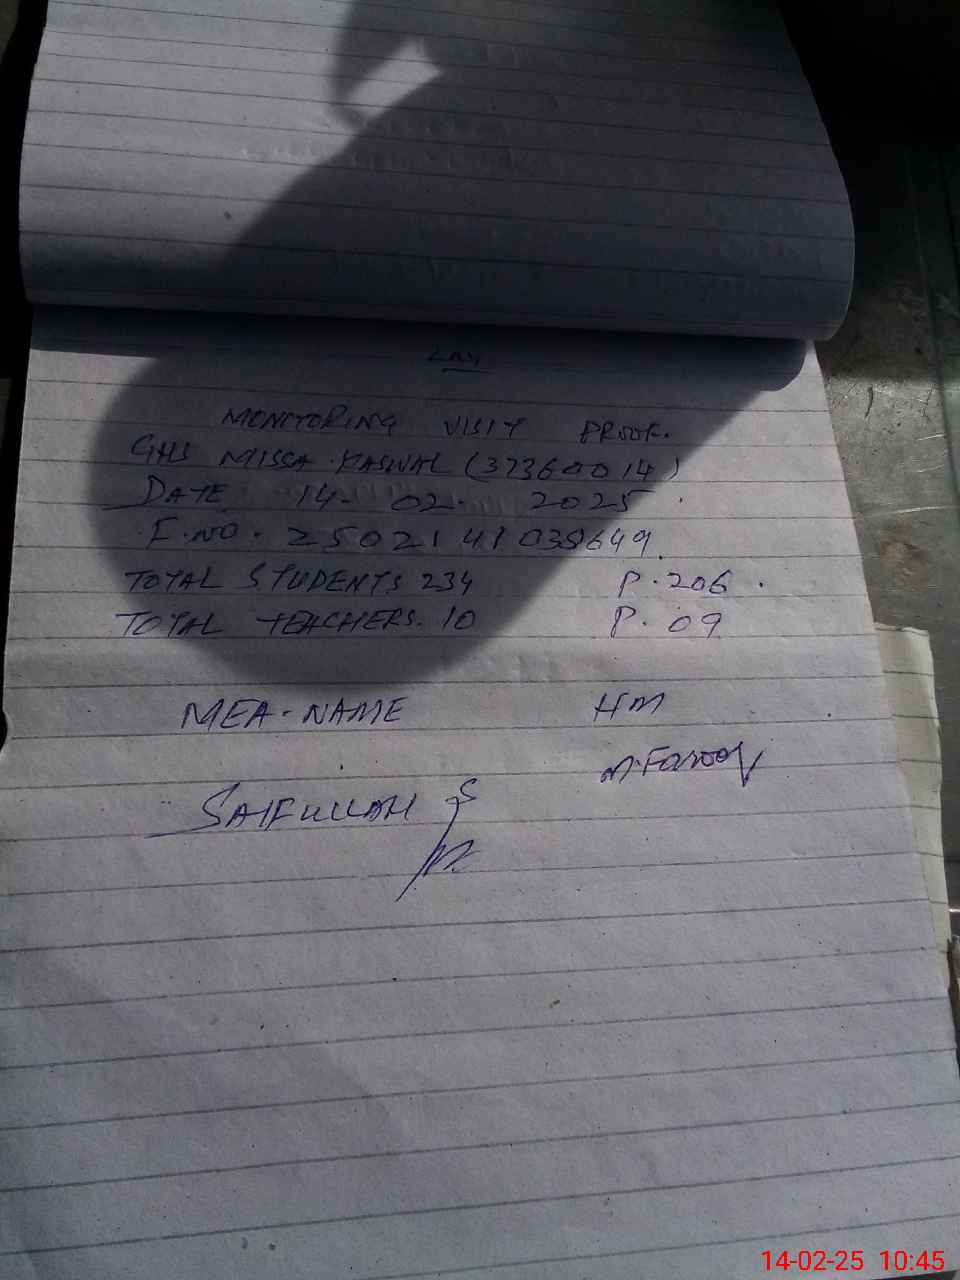 MONITORING VISIT PROOF.
GHS MISSA KASWAL (37360014)
DATE 14-02-2025.
F.NO. 
TOTAL STUDENTS 234 P.206.
TOTAL TEACHERS. 10 P.09
MEA-NAME HM
M.Farooq
SAIFULLAH
14-02-25 10:45